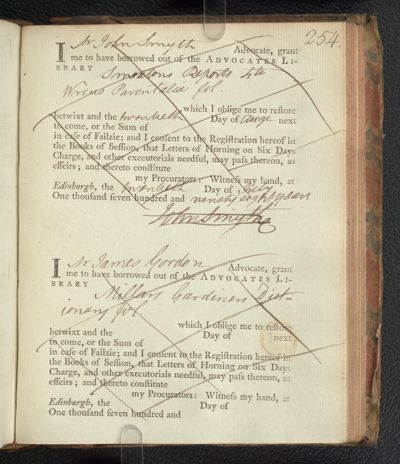 254.
I Mr John Smyth Advocate, grant
me to have borrowed out of the ADVOCATES LI-
BRARY Smeatons Reports 4to
Wrens Parentalia fol.
which I oblige me to restore
betwixt and the twentieth Day of Augt next
to come, or the Sum of
in case of Failzie; and I consent to the Registration hereof in
the Books of Session, that Letters of Horning on Six Days
Charge, and other executorials needful, may pass thereon, as
effeirs; and thereto constitute
my Procurators: Witness my hand, at
Edinburgh, the twentieth Day of July
One thousand seven hundred and ninety eight years
John Smyth
I Mr James Gordon Advocate, grant
me to have borrowed out of the ADVOCATES LI-
BRARY Millars Gardiners Dict-
ionary fol.
which I oblige me to restore
betwixt and the Day of next
to come, or the Sum of
in case of Failzie; and I consent to the Registration hereof in
the Books of Session, that Letters of Horning on Six Days
Charge, and other executorials needful, may pass thereon, as
effeirs; and thereto constitute
my Procurators: Witness my hand, at
Edinburgh, the Day of
One thousand seven hundred and